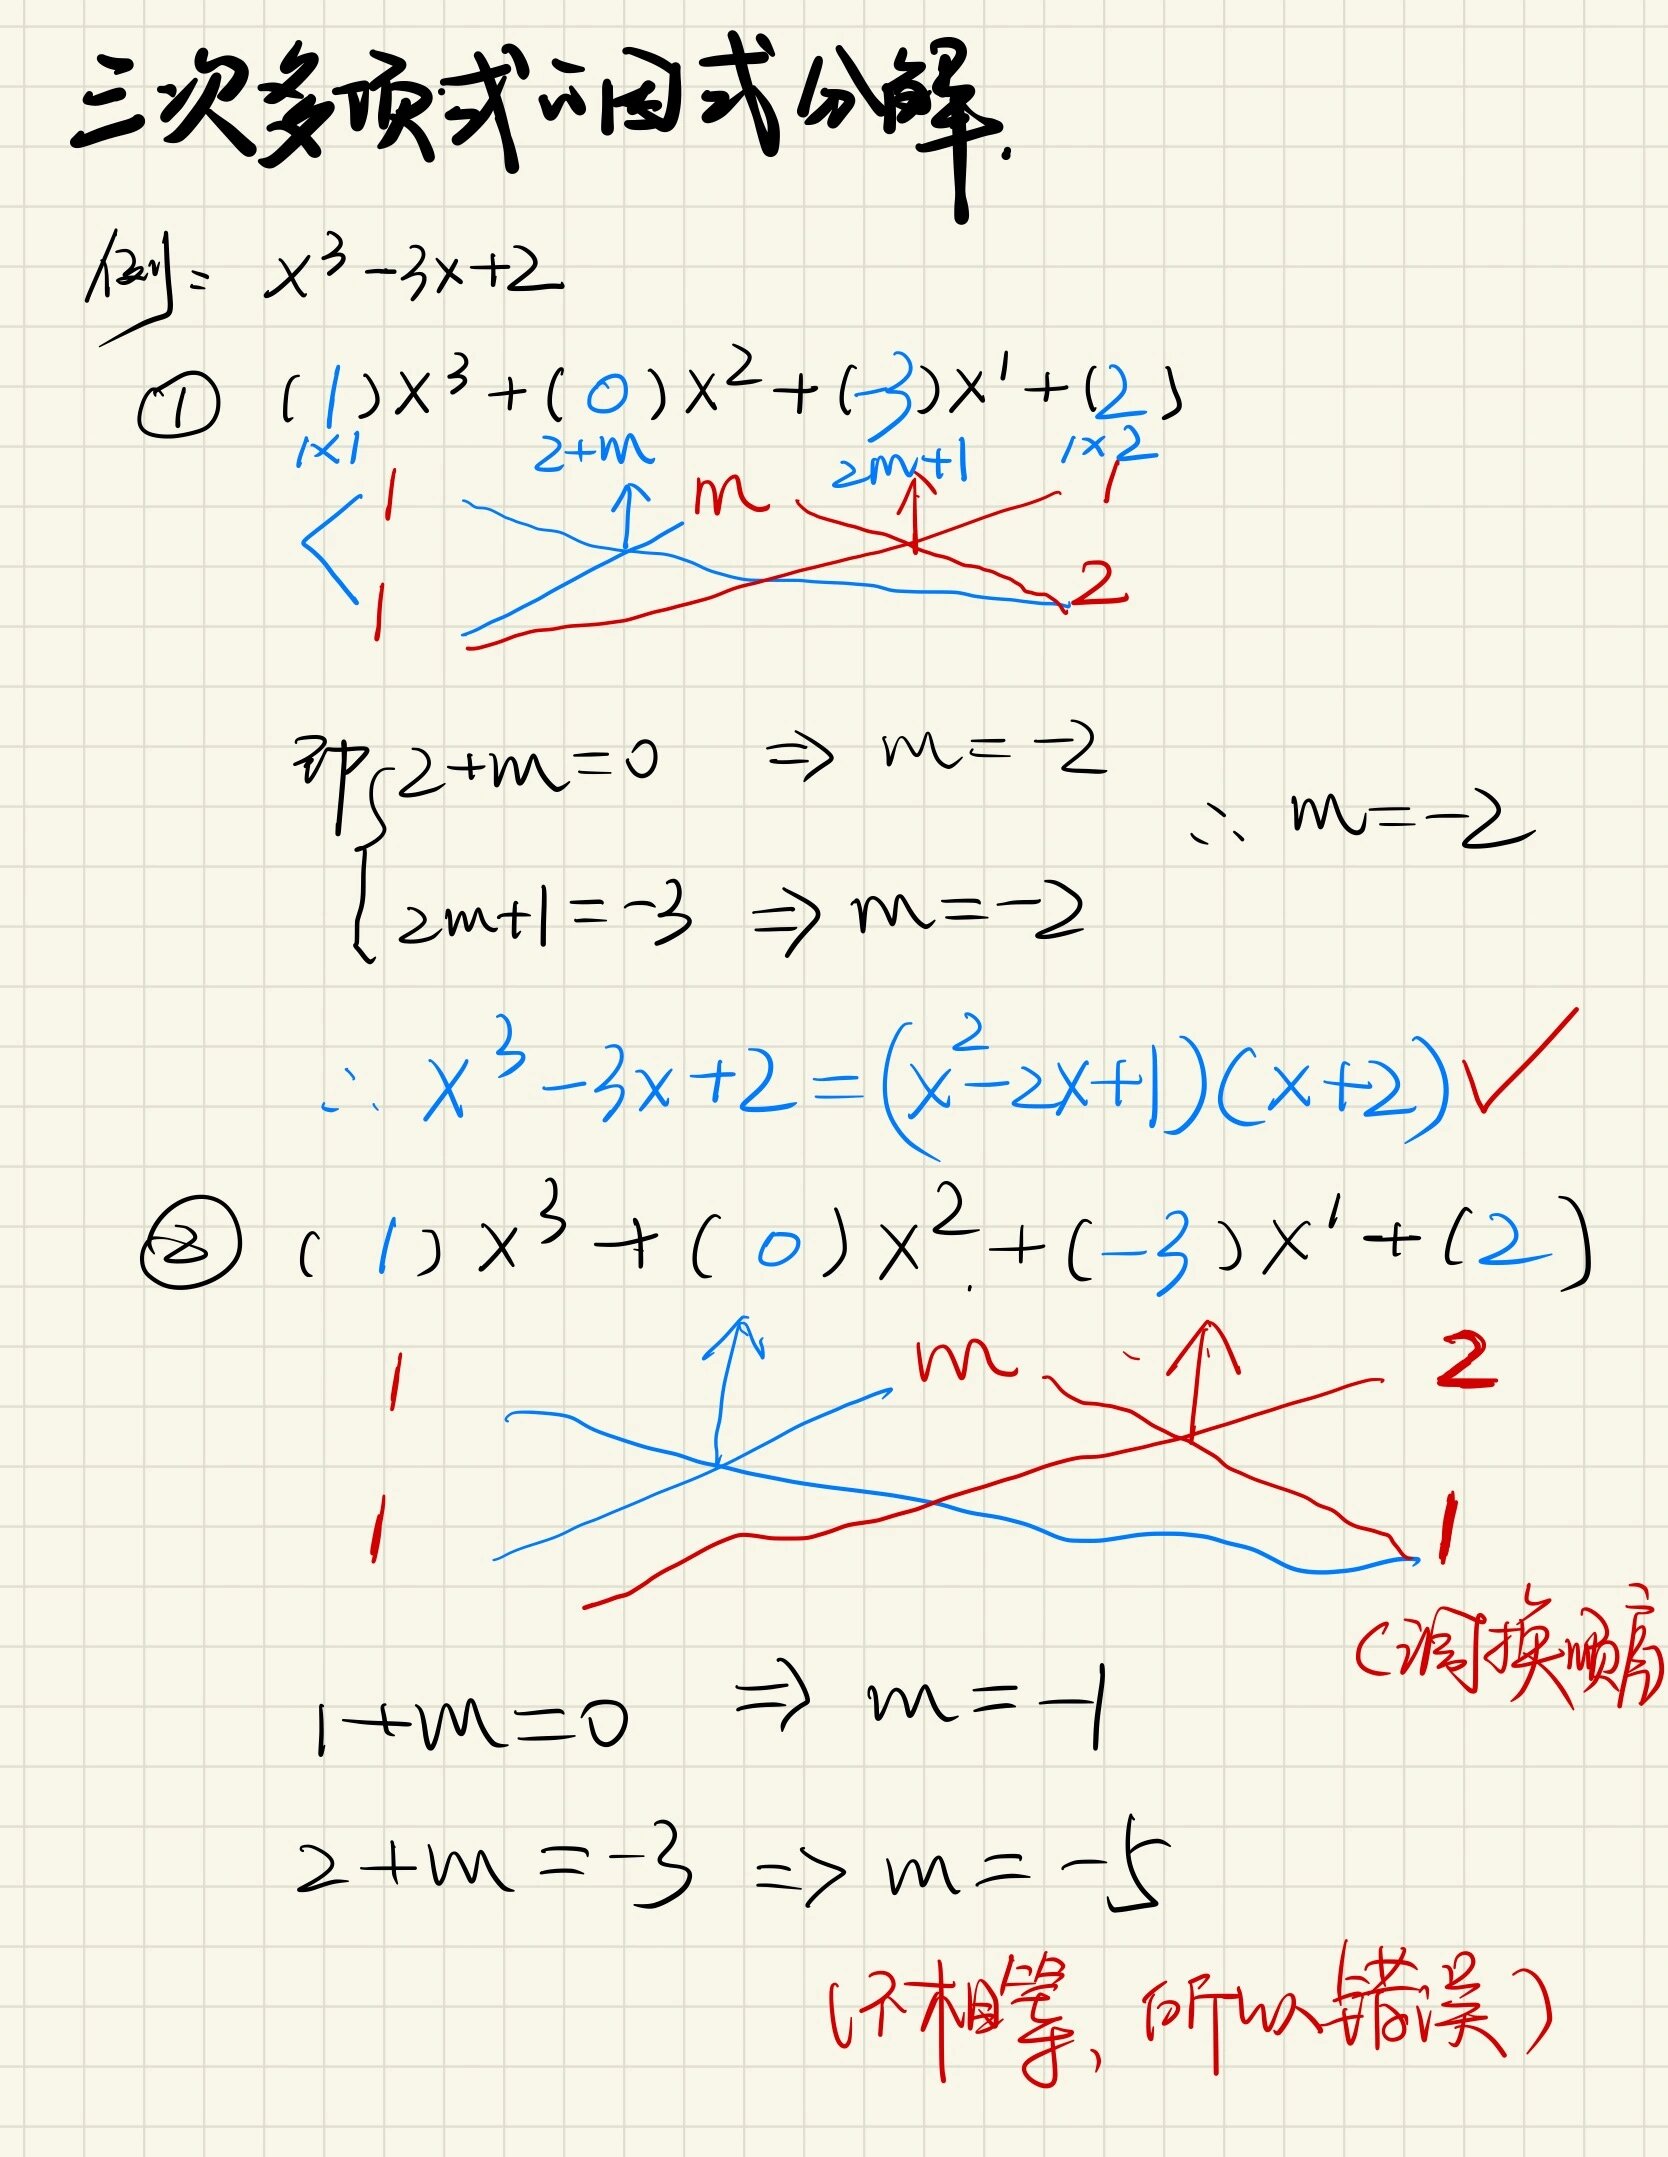 三次多项式的因式分解.
例: x³-3x+2
① (1)x³+(0)x²+(-3)x¹+(2)
1×1 2+m 2m+1 1×2
1 m 1
1 2
即{2+m=0 ⇒ m=-2
∴ m=-2
2m+1=-3 ⇒ m=-2
∴ x³-3x+2=(x²-2x+1)(x+2)✓
② (1)x³+(0)x²+(-3)x¹+(2)
1 m 2
1 1
(调换顺序
1+m=0 ⇒ m=-1
2+m=-3 ⇒ m=-5
(不相等,所以错误)